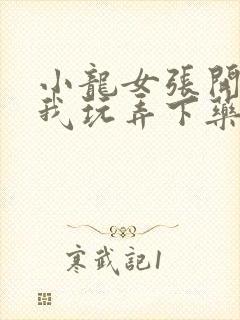 小龍女張開
我玩弄下藥
寒武記1